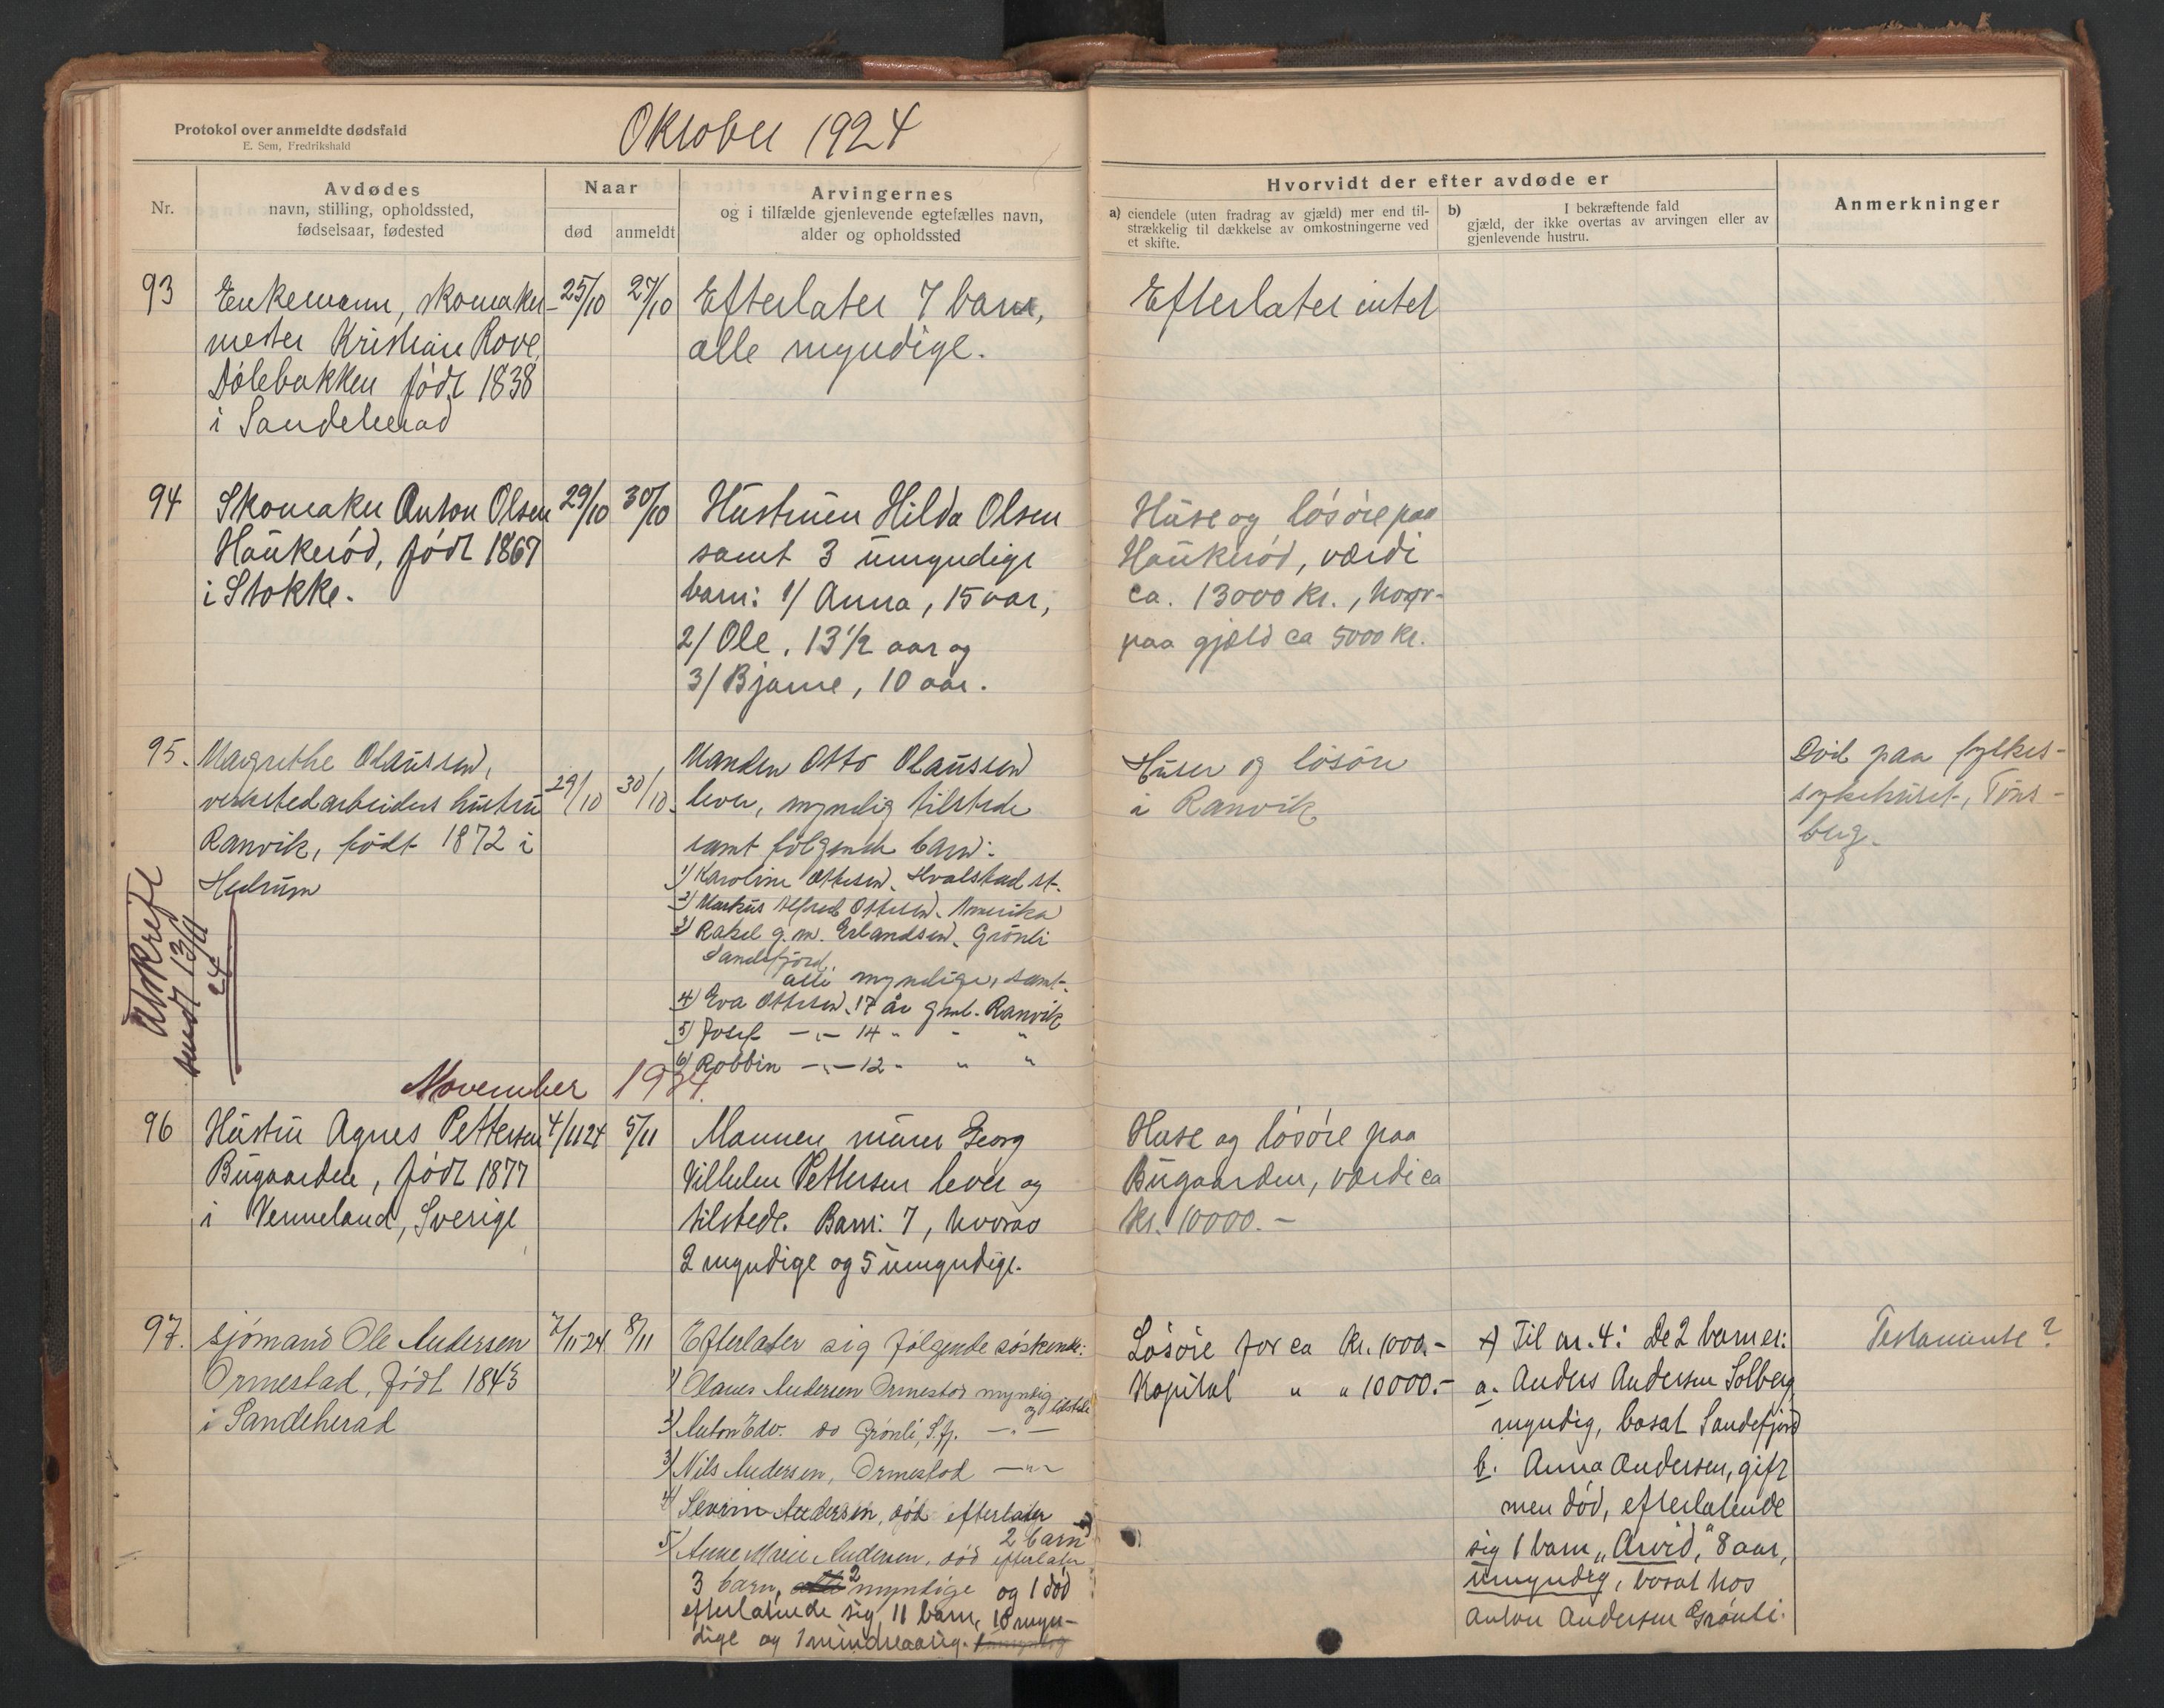 Protokol over anmeldte dødsfald
E. Sem, Fredrikshald
Oktober 1924
Nr.
Avdødes
navn, stilling, opholdssted,
fødselsaar, fødested
Naar
død
anmeldt
Arvingernes
og i tilfælde gjenlevende egtefælles navn,
alder og opholdssted
Hvorvidt der efter avdøde er
a) eiendele (uten fradrag av gjæld) mer end til-
strækkelig til dækkelse av omkostningerne ved
et skifte.
b) I bekræftende fald
gjæld, der ikke overtas av arvingen eller av
gjenlevende hustru.
Anmerkninger
93
Enkemann, skomaker-
mester Kristian Rove,
Dølebakken født 1838
i Sandeherad
25/10
27/10
Efterlater 7 barn,
alle myndige.
Efterlater intet
94
Skomaker Anton Olsen
Haukerød, født 1867
i Stokke.
29/10
30/10
Hustruen Hilda Olsen
samt 3 umyndige
barn: 1/ Anna, 15 aar,
2/ Ole, 13 1/2 aar og
3/ Bjarne, 10 aar.
Huse og løsøre paa
Haukerød, værdi
ca. 13000 kr., hvor-
paa gjæld ca 5000 kr.
95.
Magrethe Olaussen,
verkstedarbeiders hustru
Ranvik, født 1872 i
Hedrum
29/10
30/10.
Manden Otto Olaussen
lever, myndig tilstede
samt følgende barn:
1) Karoline Ottesen, Hvalstad st.
2) Markus Alfred Ottesen, Amerika
3) Rakel g. m. Erlandsen, Grønli
Sandefjord,
alle myndige, samt
4) Eva Ottesen, 17 år gml. Ranvik
5) Josef -„- 14 " - "
6) Robbin -„- 12 - " "
Huser og løsøre
i Ranvik
Død paa fylkes-
sykehuset, Tøns-
berg.
Utskrift
sendt 13/11
24
November 1924.
96
Hustru Agnes Pettersen
Bugaarden, født 1877
i Vermeland, Sverige
4/11 24
5/11
Mannen, murer Georg
Vilhelm Pettersen lever og
tilstede. Barn: 7, hvorav
2 myndige og 5 umyndige.
Huse og løsøre paa
Bugaarden, værdi ca
kr. 10000.-
97.
Sjømand Ole Andersen
Ormestad, født 1843
i Sandeherad
7/11-24
8/11
Efterlater sig følgende søskende:
1) Olaves Andersen Ormestad myndig
og tilstede
2) Anton Edv. do Grønli, S.fj. -„-
3) Nils Andersen, Ormestad -„-
4) Severin Andersen, død efterlater
2 barn x)
5) Anne Marie Andersen, død efterlater
3 barn, alle 2 myndige og 1 død
efterlatende sig 11 barn, 10 myn-
dige og 1 mindreaarig.
Løsøre for ca kr. 1000.-
Kapital " " 10000.-
x) Til nr. 4: De 2 barn er:
a. Anders Andersen Solberg
myndig, bosat Sandefjord
b. Anna Andersen, gift
men død, efterlatende
sig 1 barn „Arvid", 8 aar,
umyndig, bosat hos
Anton Andersen Grønli.
Testamente?